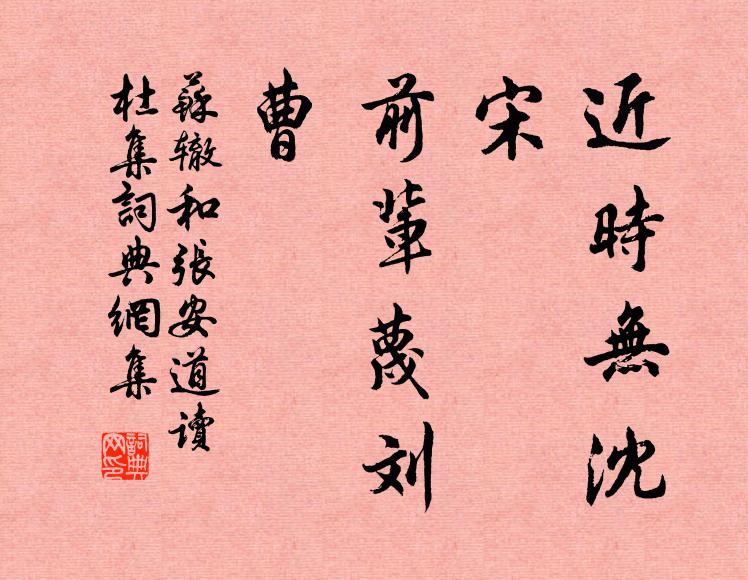 近時無沈
宋
前輩蔑刘
曹
蘇辙和張安道读
杜集詞典網集
詞典
网印